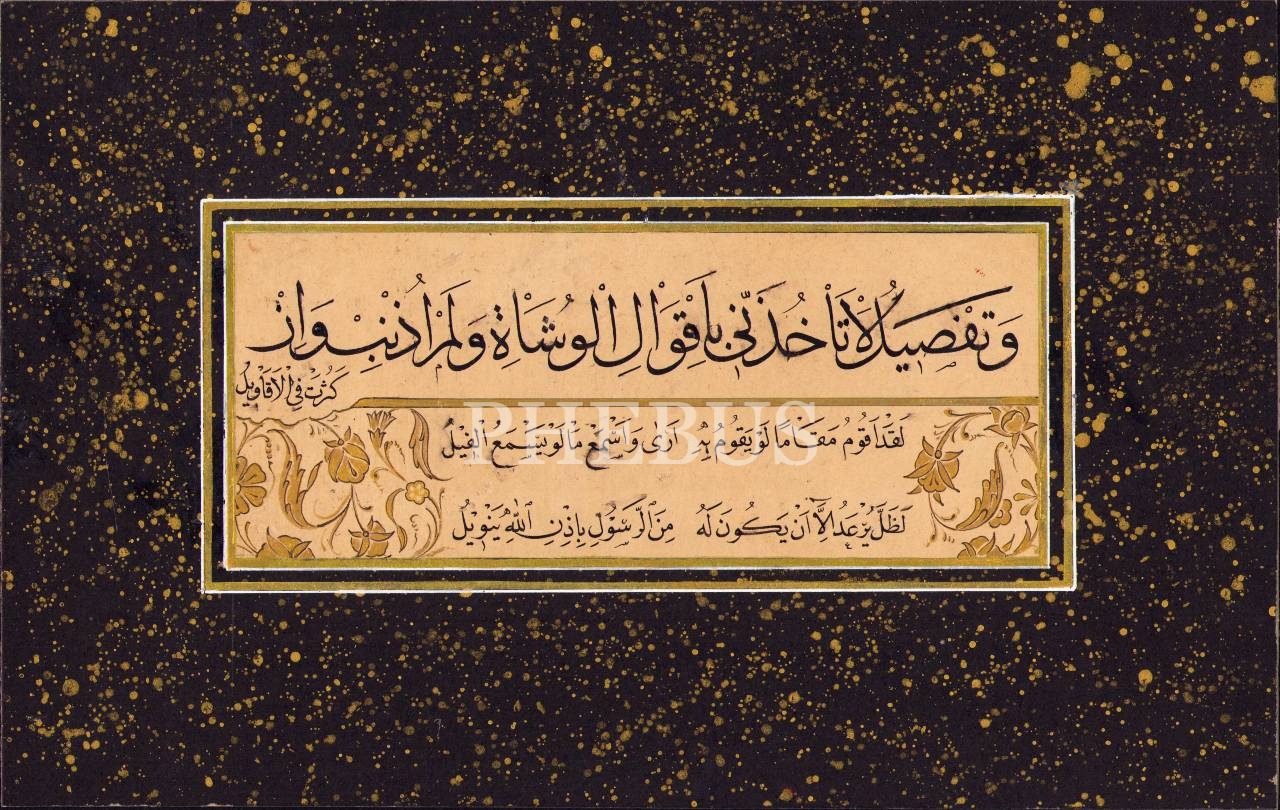 وَتَفْصِيلُ لَا تَأْخُذَنِّي بِأَقْوَالِ الْوُشَاةِ وَلَمْ أُذْنِبْ وَإِنْ
كَثُرَتْ فِي الْأَقَاوِيلُ
لَقَدْ أَقُومُ مَقَامًا لَوْ يَقُومُ بِهِ أَرَى وَأَسْمَعُ مَا لَوْ يَسْمَعُ الْفِيلُ
PHEBUS
لَظَلَّ يُرْعَدُ إِلَّا أَنْ يَكُونَ لَهُ مِنَ الرَّسُولِ بِإِذْنِ اللَّهِ تَنْوِيلُ